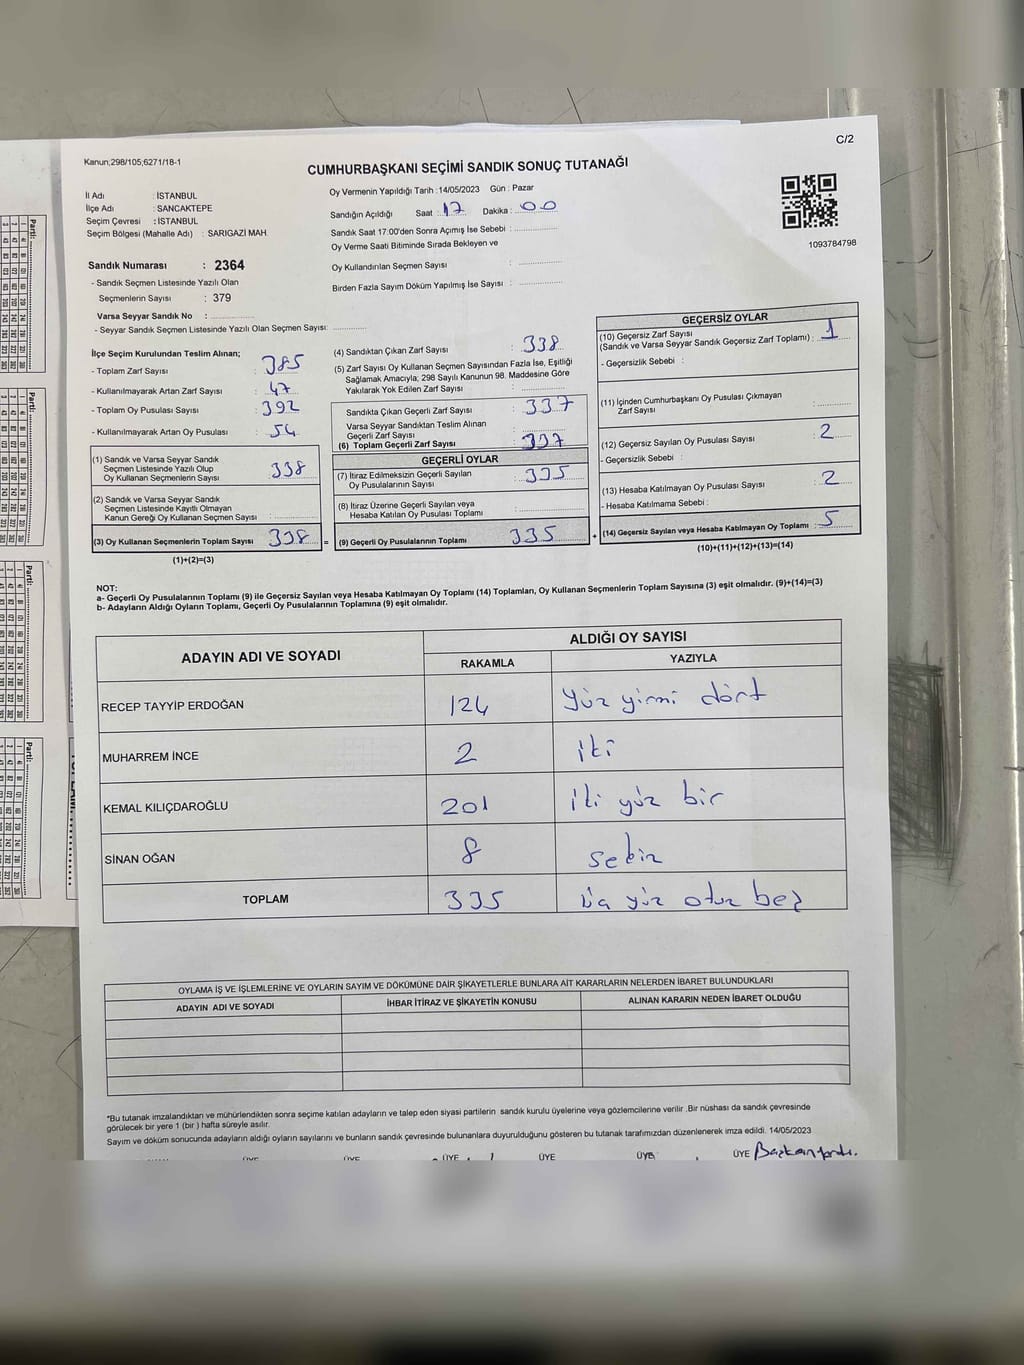 C/2
Kanun;298/105;6271/18-1
CUMHURBAŞKANI SEÇİMİ SANDIK SONUÇ TUTANAĞI
İl Adı : İSTANBUL
İlçe Adı : SANCAKTEPE
Seçim Çevresi : İSTANBUL
Seçim Bölgesi (Mahalle Adı) : SARIGAZİ MAH.
Oy Vermenin Yapıldığı Tarih :14/05/2023 Gün : Pazar
Sandığın Açıldığı Saat : 17 Dakika : 00
Sandık Saat 17:00'den Sonra Açımış İse Sebebi :
Oy Verme Saati Bitiminde Sırada Bekleyen ve
Oy Kullandırılan Seçmen Sayısı :
Birden Fazla Sayım Döküm Yapılmış İse Sayısı :
1093784798
Sandık Numarası : 2364
- Sandık Seçmen Listesinde Yazılı Olan
Seçmenlerin Sayısı : 379
Varsa Seyyar Sandık No :
- Seyyar Sandık Seçmen Listesinde Yazılı Olan Seçmen Sayısı:
İlçe Seçim Kurulundan Teslim Alınan;
- Toplam Zarf Sayısı : 385
- Kullanılmayarak Artan Zarf Sayısı : 47
- Toplam Oy Pusulası Sayısı : 392
- Kullanılmayarak Artan Oy Pusulası : 54
(1) Sandık ve Varsa Seyyar Sandık
Seçmen Listesinde Yazılı Olup
Oy Kullanan Seçmenlerin Sayısı : 338
(2) Sandık ve Varsa Seyyar Sandık
Seçmen Listesinde Kayıtlı Olmayan
Kanun Gereği Oy Kullanan Seçmen Sayısı :
(3) Oy Kullanan Seçmenlerin Toplam Sayısı 338 =
(1)+(2)=(3)
(4) Sandıktan Çıkan Zarf Sayısı : 338
(5) Zarf Sayısı Oy Kullanan Seçmen Sayısından Fazla İse, Eşitliği
Sağlamak Amacıyla; 298 Sayılı Kanunun 98. Maddesine Göre
Yakılarak Yok Edilen Zarf Sayısı :
Sandıkta Çıkan Geçerli Zarf Sayısı : 337
Varsa Seyyar Sandıktan Teslim Alınan
Geçerli Zarf Sayısı :
(6) Toplam Geçerli Zarf Sayısı : 337
GEÇERLİ OYLAR
(7) İtiraz Edilmeksizin Geçerli Sayılan
Oy Pusulalarının Sayısı : 335
(8) İtiraz Üzerine Geçerli Sayılan veya
Hesaba Katılan Oy Pusulası Toplamı :
(9) Geçerli Oy Pusulalarının Toplamı : 335 +
GEÇERSİZ OYLAR
(10) Geçersiz Zarf Sayısı
(Sandık ve Varsa Seyyar Sandık Geçersiz Zarf Toplamı) : 1
- Geçersizlik Sebebi :
(11) İçinden Cumhurbaşkanı Oy Pusulası Çıkmayan
Zarf Sayısı :
(12) Geçersiz Sayılan Oy Pusulası Sayısı : 2
- Geçersizlik Sebebi :
(13) Hesaba Katılmayan Oy Pusulası Sayısı : 2
- Hesaba Katılmama Sebebi :
(14) Geçersiz Sayılan veya Hesaba Katılmayan Oy Toplamı : 5
(10)+(11)+(12)+(13)=(14)
NOT:
a- Geçerli Oy Pusulalarının Toplamı (9) ile Geçersiz Sayılan veya Hesaba Katılmayan Oy Toplamı (14) Toplamları, Oy Kullanan Seçmenlerin Toplam Sayısına (3) eşit olmalıdır. (9)+(14)=(3)
b- Adayların Aldığı Oyların Toplamı, Geçerli Oy Pusulalarının Toplamına (9) eşit olmalıdır.
ADAYIN ADI VE SOYADI
ALDIĞI OY SAYISI
RAKAMLA YAZIYLA
RECEP TAYYİP ERDOĞAN 124 yüz yirmi dört
MUHARREM İNCE 2 iki
KEMAL KILIÇDAROĞLU 201 iki yüz bir
SİNAN OĞAN 8 sekiz
TOPLAM 335 yüz otuz beş
OYLAMA İŞ VE İŞLEMLERİNE VE OYLARIN SAYIM VE DÖKÜMÜNE DAİR ŞİKAYETLERLE BUNLARA AİT KARARLARIN NELERDEN İBARET BULUNDUKLARI
ADAYIN ADI VE SOYADI İHBAR İTİRAZ VE ŞİKAYETİN KONUSU ALINAN KARARIN NEDEN İBARET OLDUĞU
*Bu tutanak imzalandıktan ve mühürlendikten sonra seçime katılan adayların ve talep eden siyasi partilerin sandık kurulu üyelerine veya gözlemcilerine verilir .Bir nüshası da sandık çevresinde
görülecek bir yere 1 (bir ) hafta süreyle asılır.
Sayım ve döküm sonucunda adayların aldığı oyların sayılarını ve bunların sandık çevresinde bulunanlara duyurulduğunu gösteren bu tutanak tarafımızdan düzenlenerek imza edildi. 14/05/2023
ÜYE ÜYE ÜYE ÜYE ÜYE ÜYE
Parti:
Parti:
Parti:
Parti: